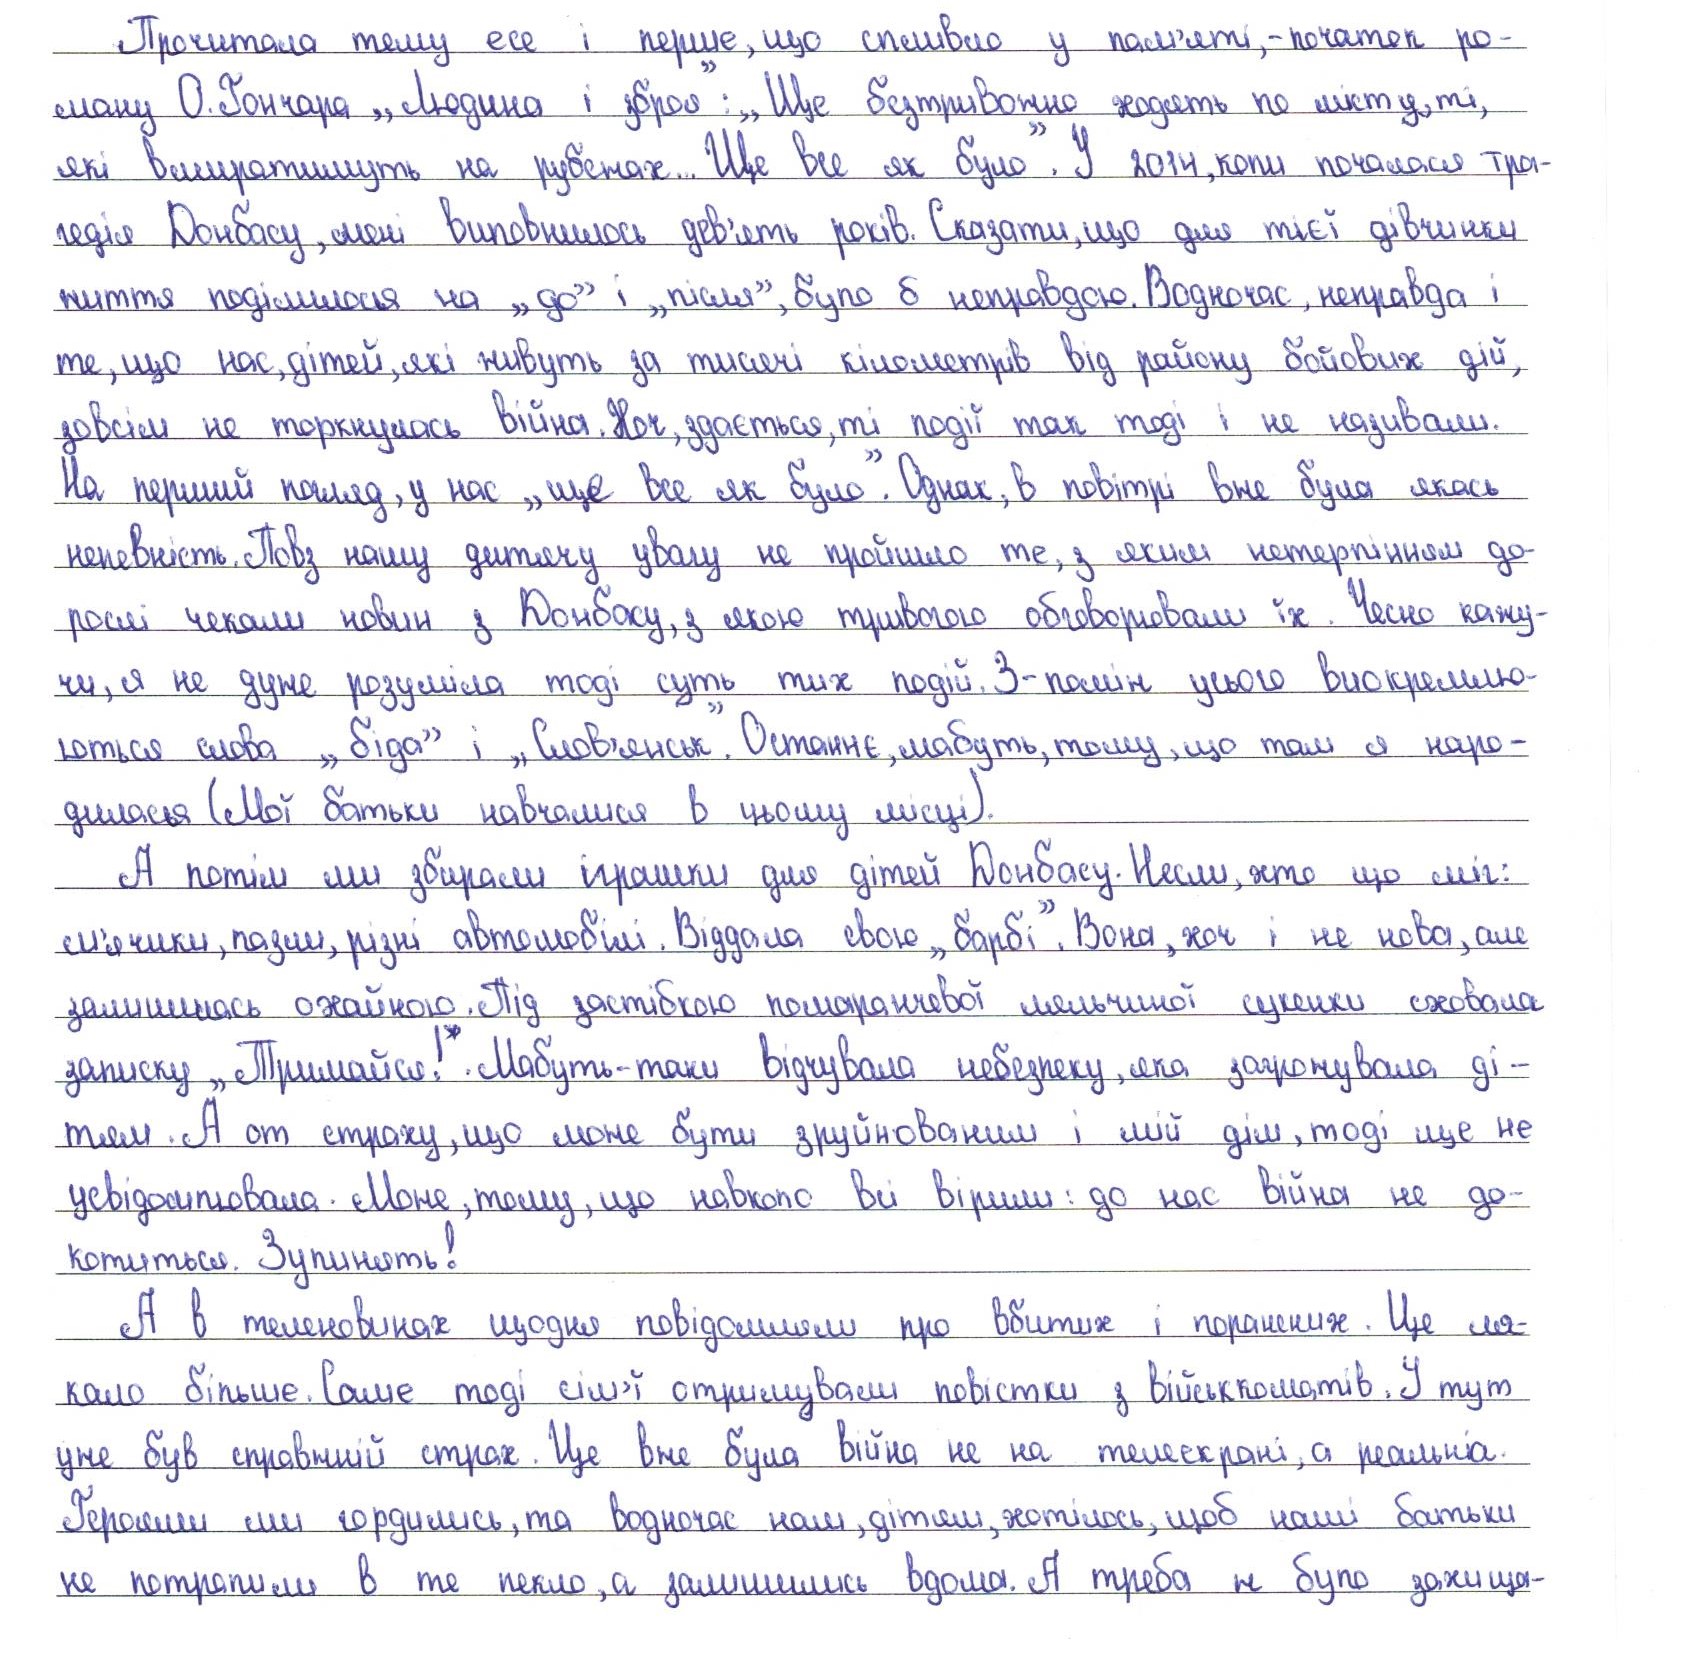 Прочитала тему есе і перше, що спливло у пам'яті, - початок ро-
ману О. Гончара „Людина і зброя”: „Ще безтривожно ходять по місту, ті,
які вмиратимуть на рубежах... Ще все як було”. У 2014, коли почалася тра-
гедія Донбасу, мені виповнилось дев'ять років. Сказати, що для тієї дівчинки
життя поділилося на „до” і „після”, було б неправдою. Водночас, неправда і
те, що нас, дітей, які живуть за тисячі кілометрів від району бойових дій,
зовсім не торкнулась війна. Хоч, здається, ті події так тоді і не називали.
На перший погляд, у нас „ще все як було”. Однак, в повітрі вже була якась
непевність. Повз нашу дитячу увагу не пройшло те, з яким нетерпінням до-
рослі чекали новин з Донбасу, з якою тривогою обговорювали їх. Чесно кажу-
чи, я не дуже розуміла тоді суть тих подій. З-поміж усього виокремлю-
ються слова „біда” і „Слов'янськ”. Останнє, мабуть, тому, що там я наро-
дилася (Мої батьки навчалися в цьому місці).
А потім ми збирали іграшки для дітей Донбасу. Несли, хто що міг:
м'ячики, пазли, різні автомобілі. Віддала свою „барбі”. Вона, хоч і не нова, але
залишилась охайною. Під застібкою помаранчевої ляльчиної сукенки сховала
записку „Тримайся!”. Мабуть-таки відчувала небезпеку, яка загрожувала ді-
тям. А от страху, що може бути зруйнованим і мій дім, тоді ще не
усвідомлювала. Може, тому, що навколо всі вірили: до нас війна не до-
котиться. Зупинять!
А в теленовинах щодня повідомляли про вбитих і поранених. Це ля-
кало більше. Саме тоді сім'ї отримували повістки з військкоматів. І тут
уже був справжній страх. Це вже була війна не на телеекрані, а реальна.
Героями ми гордились, та водночас нам, дітям, хотілось, щоб наші батьки
не потрапили в те пекло, а залишились вдома. А треба ж було захища-